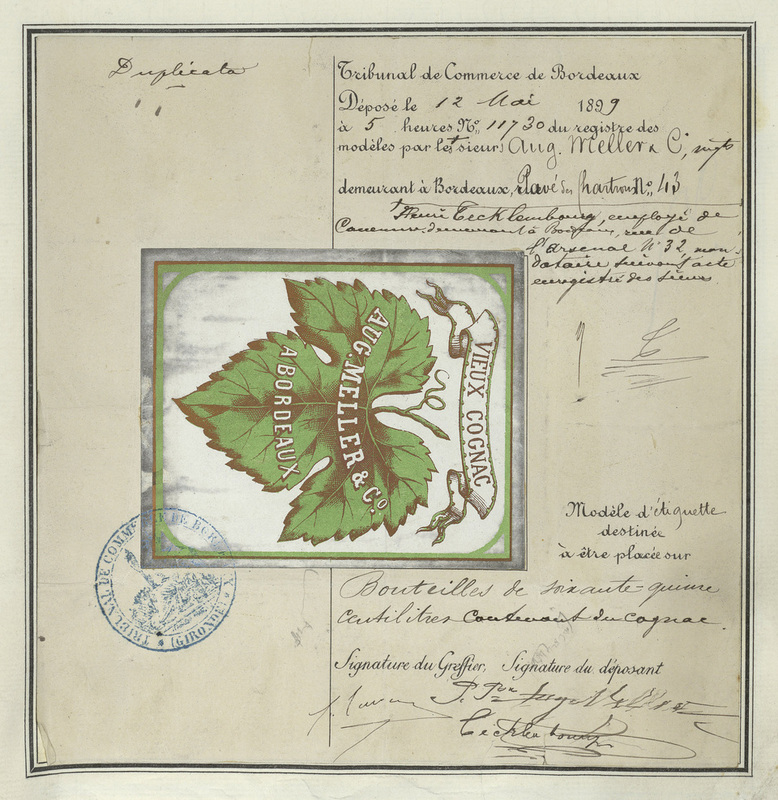 Duplicata
Tribunal de Commerce de Bordeaux
Déposé le 12 Mai 1899
à 5 heures No. 11730 du registre des
modèles par les sieurs Aug. Meller & Cie, négts
demeurant à Bordeaux, Pavé des Chartrons No. 43
Henri Tecklembourg, employé de
Commerce, demeurant à Bordeaux, rue de
l'Arsenal N° 32, man-
dataire suivant acte
enregistré des sieurs
VIEUX COGNAC
AUG. MELLER & Co.
A BORDEAUX
Modèle d'étiquette
destinée
à être placée sur
Bouteilles de soixante-quinze
centilitres contenant du cognac.
TRIBUNAL DE COMMERCE DE BORDEAUX
(GIRONDE)
Signature du Greffier, Signature du déposant
P. Pon Aug. Meller
Tecklembourg